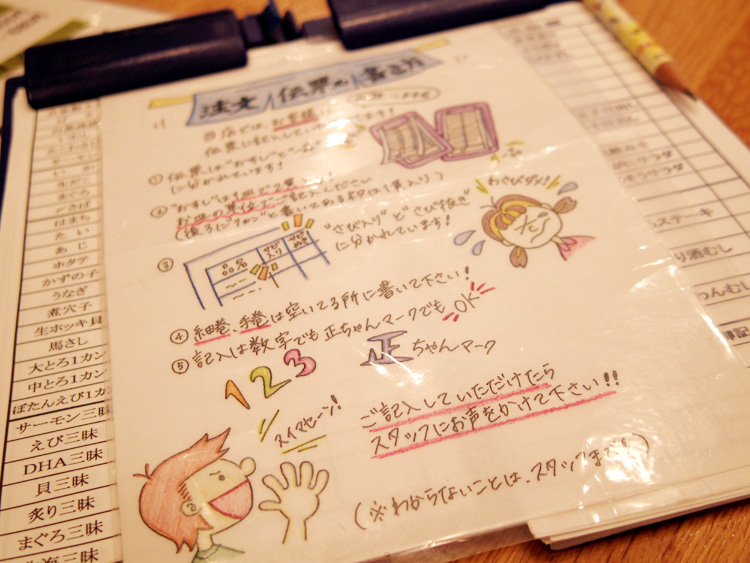 注文伝票の書き方
当店では、お客様
伝票に記入して
① 伝票は"おすし"
に分かれています！
② "おすし"は1皿で2貫入り！
お皿の単位でご記入ください
(後ろに"1カン"と書いてあるものは1貫入り)
わさびダメ！
③
品名
サビ入り
サビぬき
"さび入り"と"さび抜き"
に分かれています！
④ 細巻、手巻は空いてる所に書いて下さい！
⑤ 記入は数字でも正ちゃんマークでもOK
123
正ちゃんマーク
スイマセーン！
ご記入していただけたら
スタッフにお声をかけて下さい!!
(※わからないことは、スタッフまで！)
サーモン
いか
まぐろ
〆さば
はまち
たい
あじ
ホタテ
かずの子
うなぎ
煮穴子
生ホッキ貝
馬さし
大とろ1カン
中とろ1カン
ぼたんえび1カン
サーモン三昧
えび三昧
DHA三昧
貝三昧
炙り三昧
まぐろ三昧
ステーキ
り酒むし
わんむし